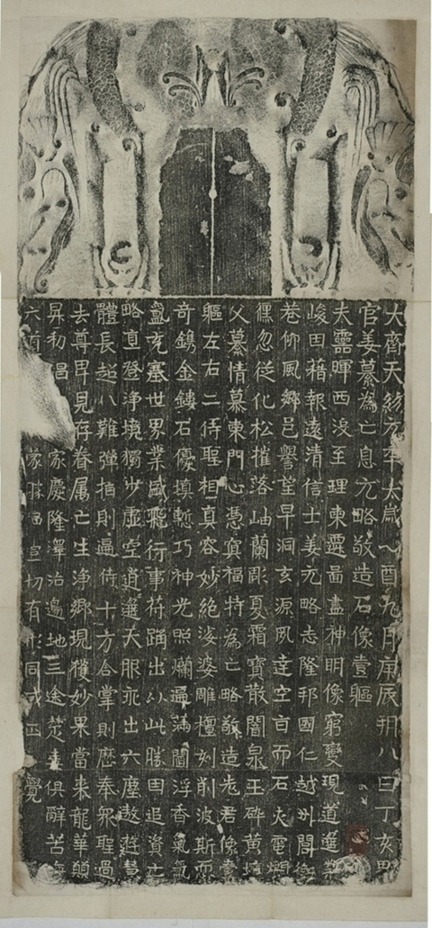 大齊天統元年太歲乙酉九月庚辰朔八日丁亥
官姜纂為亡息元略敬造石像壹軀
夫靈暉西沒至理東遷圖盡神明像窮變現道
峻因藉報遠清信士姜元略志隆邦國仁越州閭衡
巷仰風鄉邑譽望早洞玄源夙達空旨而石火電燭
倏忽從化松摧落岫蘭彫夏霜寶散闇泉玉碎黃墟
父纂情慕東門心憑冥福特為亡略敬造老君像壹
軀左右二侍聖相真容妙絕婆娑雕檀刻削波斯恧
奇鐫金鏤石優填慙巧神光照爛遍滿閻浮香氣氛
氳充塞世界業盛飛行事符踊出以此勝因追資亡
略直登淨境獨步虛空逍遙天服永出六塵敖遊慧
體長超八難彈指則遍侍十方合掌則歷奉眾聖過
去尊卑見存眷属亡生淨鄉現獲妙果當来龍華願
昇初唱 家慶隆澤洽邊地三途焚毒俱辭苦海
六道 家 切有形同成正覺